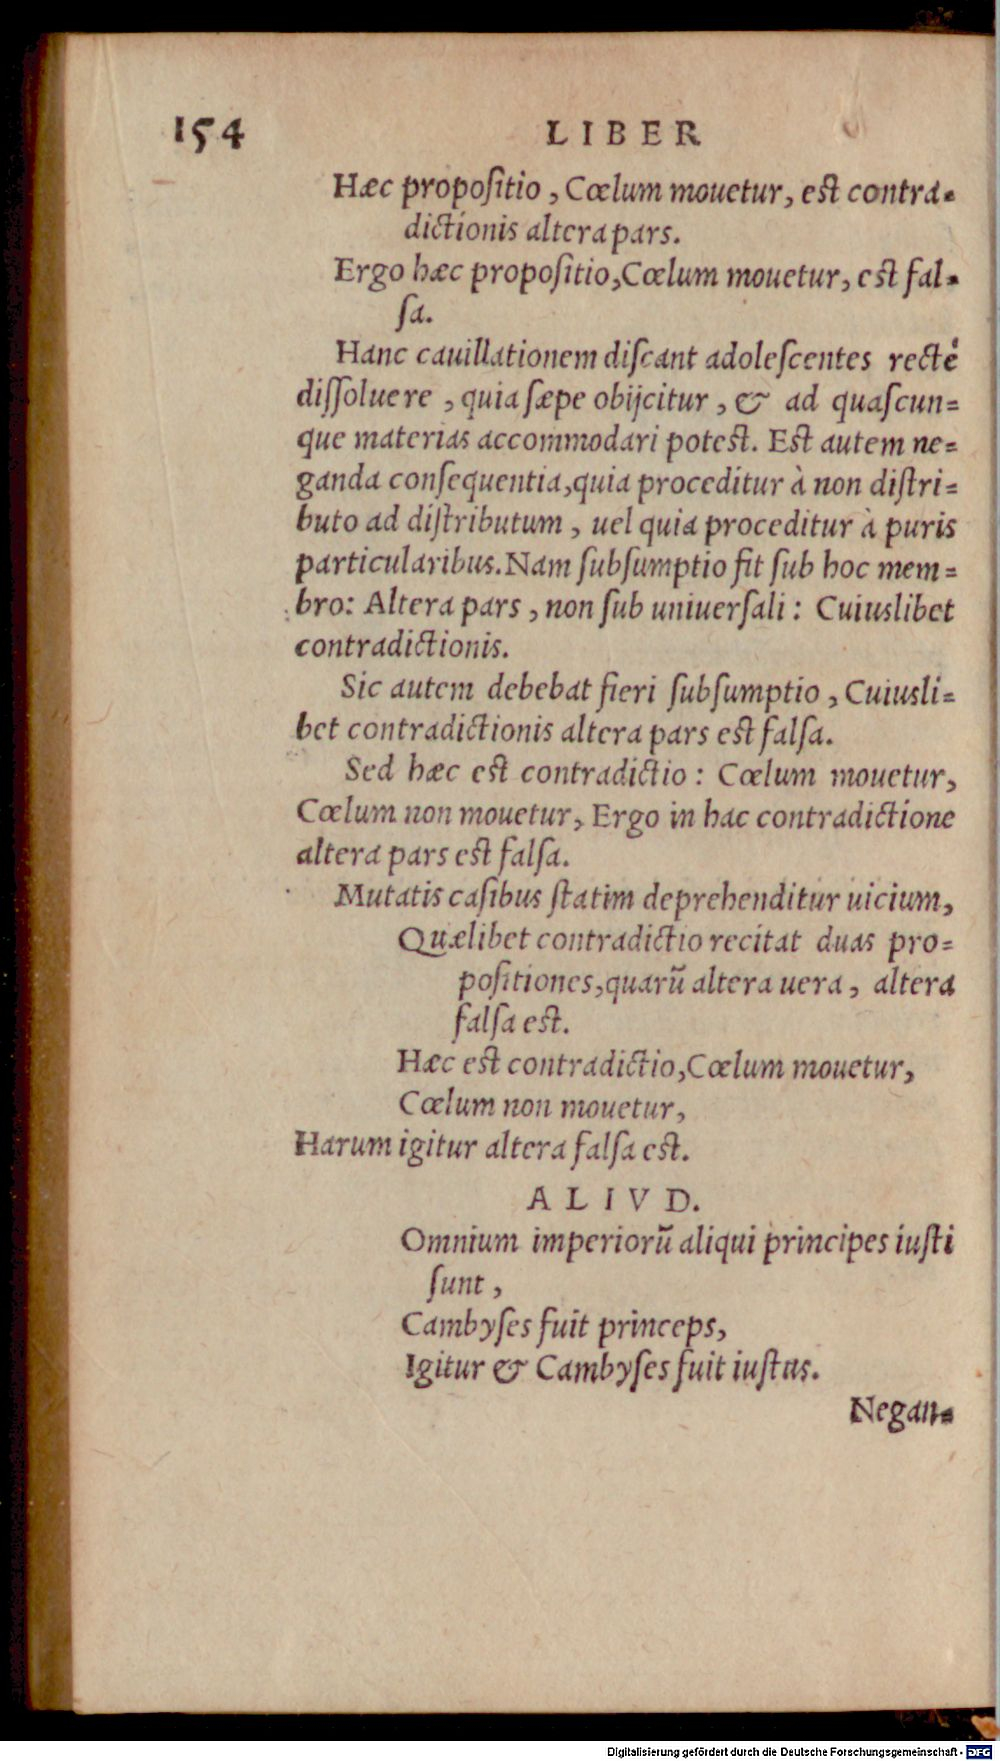 154 LIBER
Hæc propoſitio, Cœlum mouetur, eſt contra-
dictionis altera pars.
Ergo hæc propoſitio, Cœlum mouetur, eſt fal-
ſa.
Hanc cauillationem diſcant adoleſcentes rectè
diſſoluere, quia ſæpe obijcitur, & ad quaſcun=
que materias accommodari poteſt. Eſt autem ne=
ganda conſequentia, quia proceditur à non diſtri=
buto ad diſtributum, uel quia proceditur à puris
particularibus. Nam ſubſumptio fit ſub hoc mem=
bro: Altera pars, non ſub uniuerſali: Cuiuslibet
contradictionis.
Sic autem debebat fieri ſubſumptio, Cuiusli=
bet contradictionis altera pars eſt falſa.
Sed hæc eſt contradictio: Cœlum mouetur,
Cœlum non mouetur, Ergo in hac contradictione
altera pars eſt falſa.
Mutatis caſibus ſtatim deprehenditur uicium,
Quælibet contradictio recitat duas pro=
poſitiones, quarũ altera uera, altera
falſa eſt.
Hæc eſt contradictio, Cœlum mouetur,
Cœlum non mouetur,
Harum igitur altera falſa eſt.
ALIVD.
Omnium imperiorũ aliqui principes iuſti
ſunt,
Cambyſes fuit princeps,
Igitur & Cambyſes fuit iuſtus.
Negan-
Digitalisierung gefördert durch die Deutsche Forschungsgemeinschaft - DFG